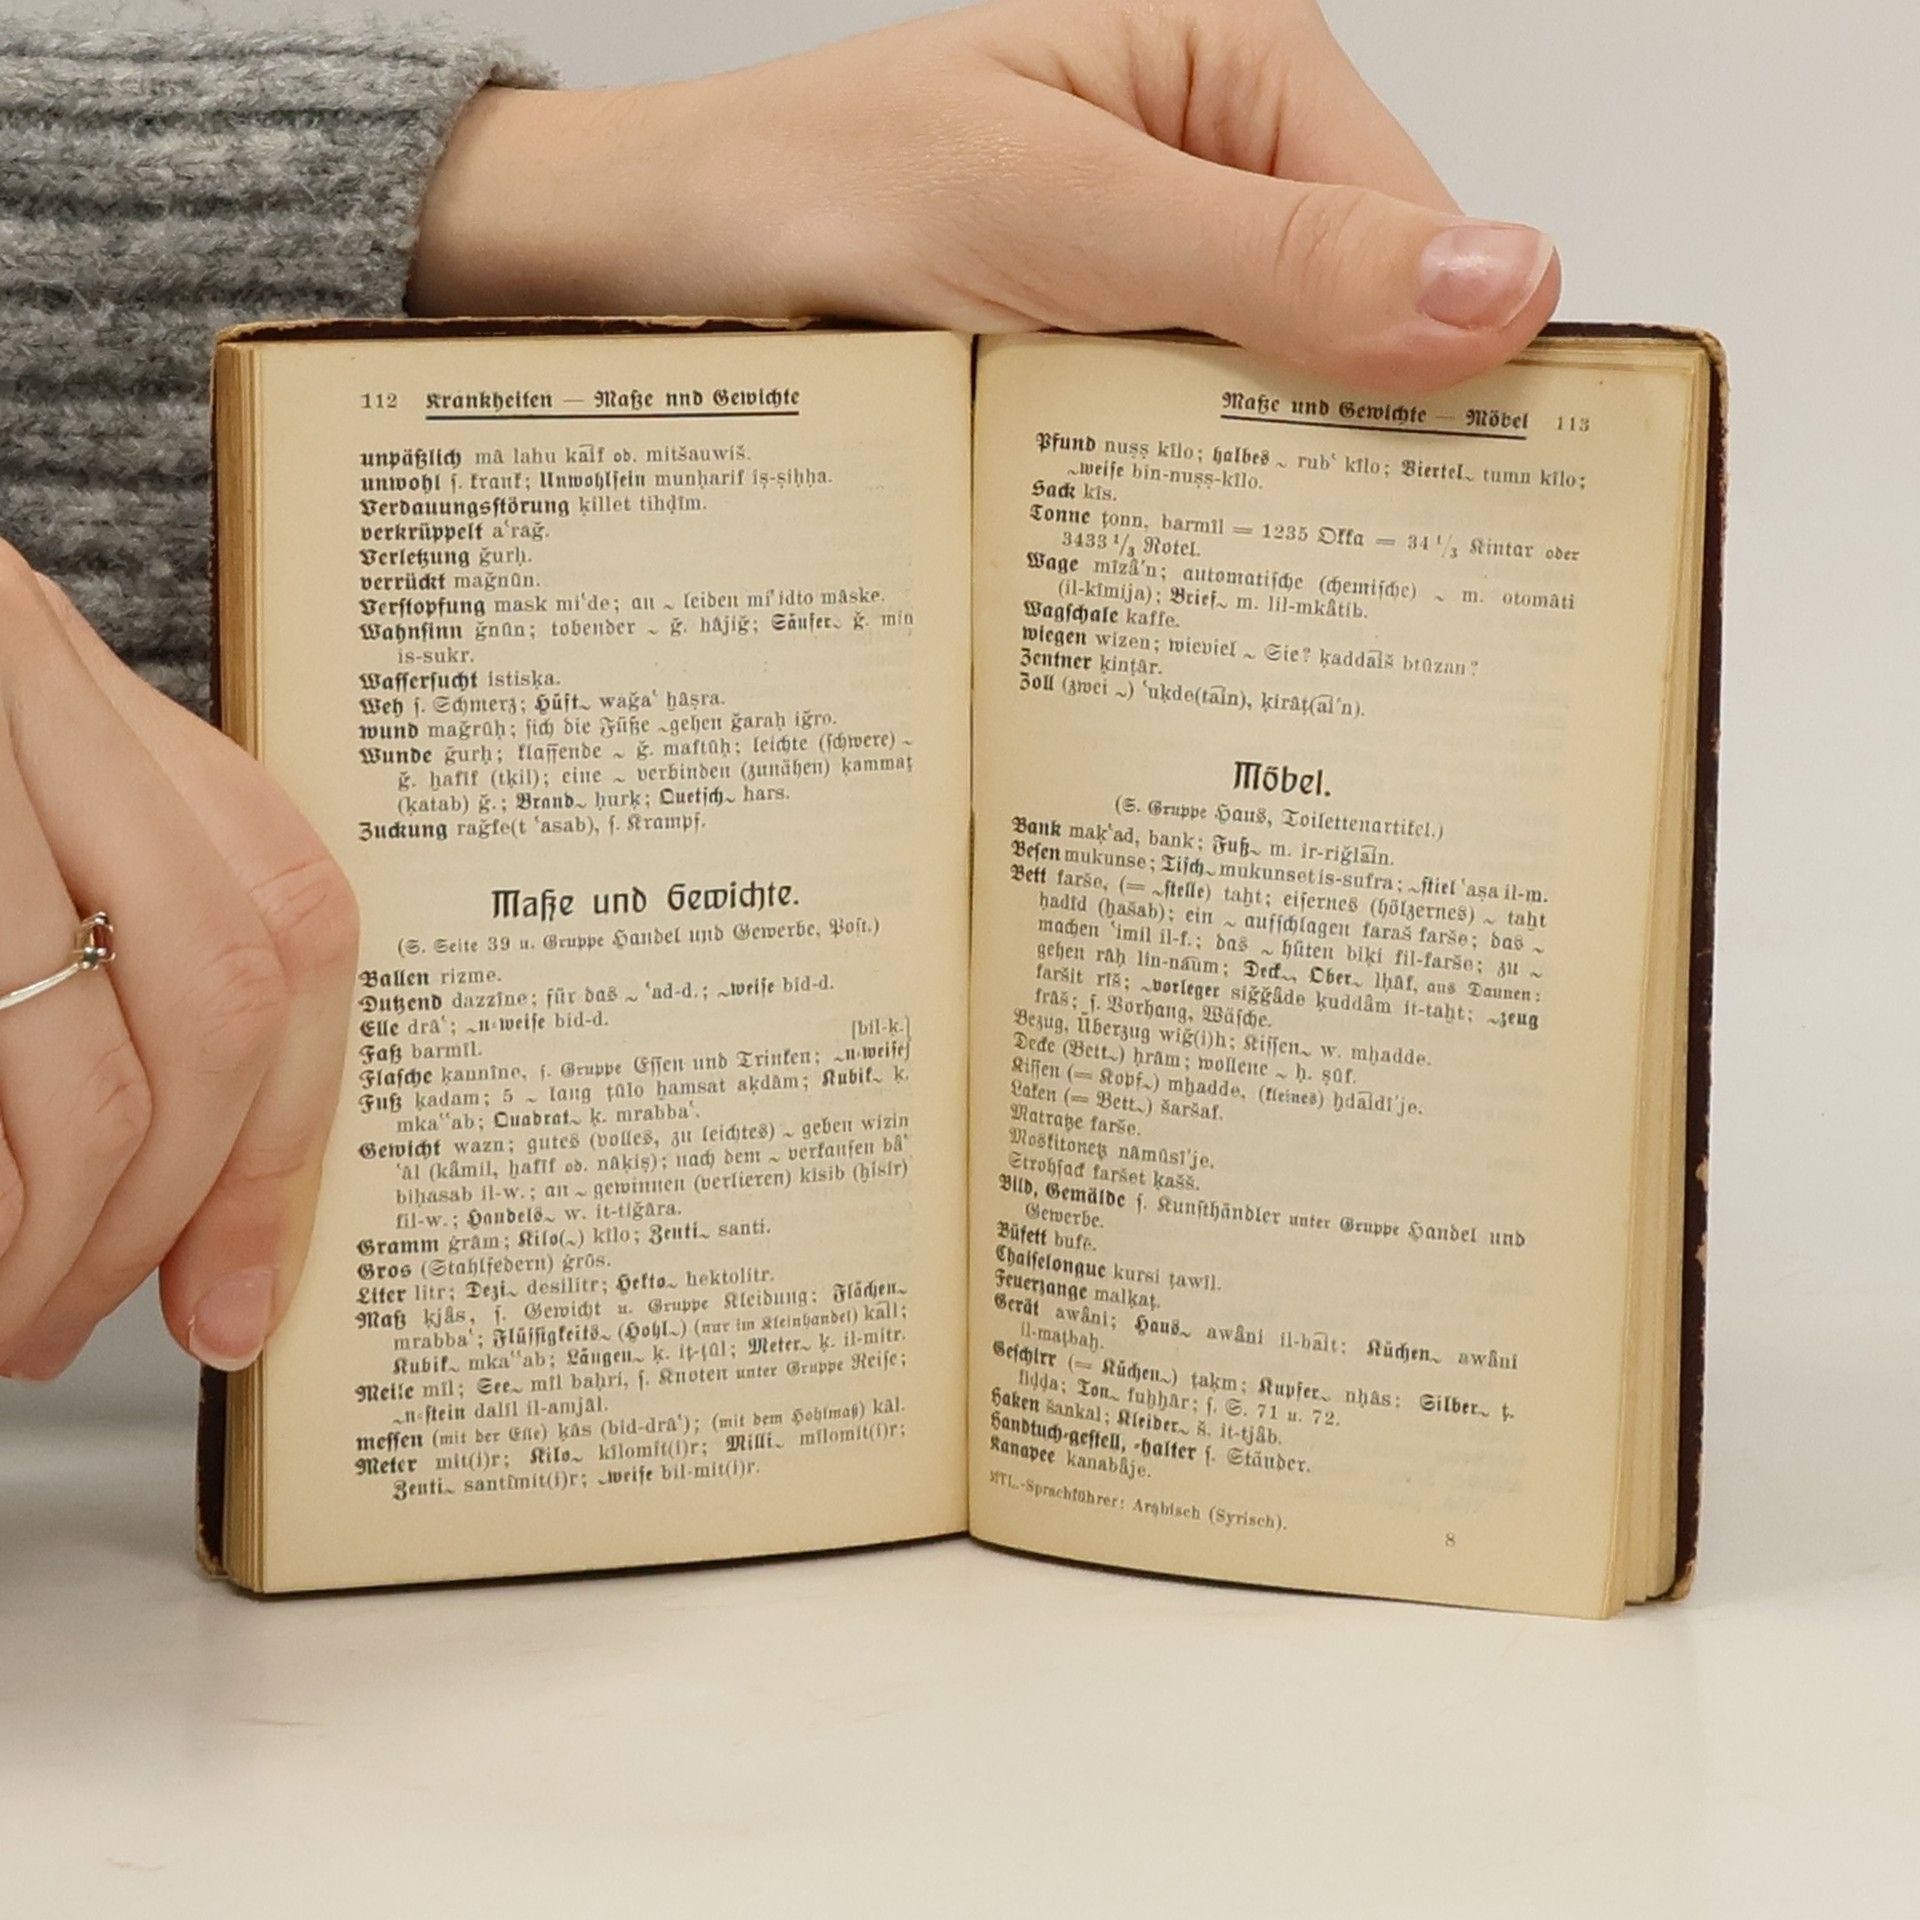 112 Krankheiten — Maße nnd Gewichte
unpäßlich mā lahu ka͞if od. mitšauwiš.
unwohl s. krank; Unwohlsein munḥarif iṣ-ṣiḥḥa.
Verdauungsstörung ḳillet tihḍīm.
verkrüppelt aʿraǧ.
Verletzung ǧurḥ.
verrückt maǧnūn.
Verstopfung mask miʿde; an ~ leiden miʿidto māske.
Wahnsinn ǧnūn; tobender ~ ǧ. hâjiǧ; Säufer~ ǧ. min
is-sukr.
Wassersucht istisḳa.
Weh s. Schmerz; Hüft~ waǧaʿ ḫâṣra.
wund maǧrūḥ; sich die Füße ~gehen ǧaraḥ iǧro.
Wunde ǧurḥ; klaffende ~ ǧ. maftūḥ; leichte (schwere) ~
ǧ. ḫafīf (tḳil); eine ~ verbinden (zunähen) ḳammaṭ
(ḳatab) ǧ.; Brand~ ḥurḳ; Quetsch~ hars.
Zuckung raǧfe(t ʿasab), s. Krampf.
Maße und Gewichte.
(S. Seite 39 u. Gruppe Handel und Gewerbe, Post.)
Ballen rizme.
Dutzend dazzīne; für das ~ ʿad-d.; ~weise bid-d.
Elle drâʿ; ~n=weise bid-d.
[bil-ḳ.]
Faß barmīl.
Flasche ḳannīne, s. Gruppe Essen und Trinken; ~n=weise
Fuß ḳadam; 5 ~ lang ṭūlo ḫamsat aḳdâm; Kubik~ ḳ.
mkaʿʿab; Quadrat~ ḳ. mrabbaʿ.
Gewicht wazn; gutes (volles, zu leichtes) ~ geben wizin
ʿâl (kâmil, ḫafīf od. nâḳiṣ); nach dem ~ verkaufen bâʿ
biḥasab il-w.; an ~ gewinnen (verlieren) kisib (ḫisir)
fil-w.; Handels~ w. it-tiǧâra.
Gramm ġrâm; Kilo(~) kīlo; Zenti~ santi.
Gros (Stahlfedern) ġrōs.
Liter litr; Dezi~ desilitr; Hekto~ hektolitr.
Maß ḳjâs, s. Gewicht u. Gruppe Kleidung; Flächen~
mrabbaʿ; Flüssigkeits~ (Hohl~) (nur im Kleinhandel) ka͞il;
Kubik~ mkaʿʿab; Längen~ ḳ. iṭ-ṭūl; Meter~ ḳ. il-mitr.
Meile mīl; See~ mīl baḥri, s. Knoten unter Gruppe Reise;
~n=stein dalīl il-amjâl.
messen (mit der Elle) ḳâs (bid-drâʿ); (mit dem Hohlmaß) kâl.
Meter mit(i)r; Kilo~ kīlomit(i)r; Milli~ mīlomit(i)r;
Zenti~ santīmit(i)r; ~weise bil-mit(i)r.
Maße und Gewichte — Möbel 113
Pfund nuṣṣ kīlo; halbes ~ rubʿ kīlo; Viertel~ tumn kīlo;
~weise bin-nuṣṣ-kīlo.
Sack kīs.
Tonne ṭonn, barmīl = 1235 Okka = 34 1/3 Kintar oder
3433 1/3 Rotel.
Wage mīzâ'n; automatische (chemische) ~ m. otomâti
(il-kīmija); Brief~ m. lil-mkâtib.
Wagschale kaffe.
wiegen wizen; wieviel ~ Sie? ḳadda͞iš btūzan?
Zentner ḳinṭâr.
Zoll (zwei ~) ʿuḳde(ta͞in), ḳirâṭ(a͞i'n).
Möbel.
(S. Gruppe Haus, Toilettenartikel.)
Bank maḳʿad, bank; Fuß~ m. ir-riǧla͞in.
Besen mukunse; Tisch~ mukunset is-sufra; ~stiel ʿaṣa il-m.
Bett farše, (= ~stelle) taḫt; eisernes (hölzernes) ~ taḫt
ḥadīd (ḫašab); ein ~ aufschlagen faraš farše; das ~
machen ʿimil il-f.; das ~ hüten biḳi fil-farše; zu ~
gehen râḥ lin-na͞um; Deck~, Ober~ lḥâf, aus Daunen:
faršit rīš; ~vorleger siǧǧâde ḳuddâm it-taḫt; ~zeug
frâš; s. Vorhang, Wäsche.
Bezug, Überzug wiǧ(i)h; Kissen~ w. mḫadde.
Decke (Bett~) ḥrâm; wollene ~ ḥ. ṣūf.
Kissen (= Kopf~) mḫadde, (kleines) ḫda͞idī'je.
Laken (= Bett~) šaršaf.
Matratze farše.
Moskitonetz nâmūsī'je.
Strohsack faršet ḳašš.
Bild, Gemälde s. Kunsthändler unter Gruppe Handel und
Gewerbe.
Büfett bufē.
Chaiselongue kursi ṭawīl.
Feuerzange malḳaṭ.
Gerät awâni; Haus~ awâni il-ba͞it; Küchen~ awâni
il-maṭbaḫ.
Geschirr (= Küchen~) ṭaḳm; Kupfer~ nḥâs; Silber~ ṭ.
fiḍḍa; Ton~ fuḫḫâr; s. S. 71 u. 72.
Haken šankal; Kleider~ š. it-tjâb.
Handtuch=gestell, =halter s. Ständer.
Kanapee kanabâje.
MTL.-Sprachführer: Arabisch (Syrisch).
8